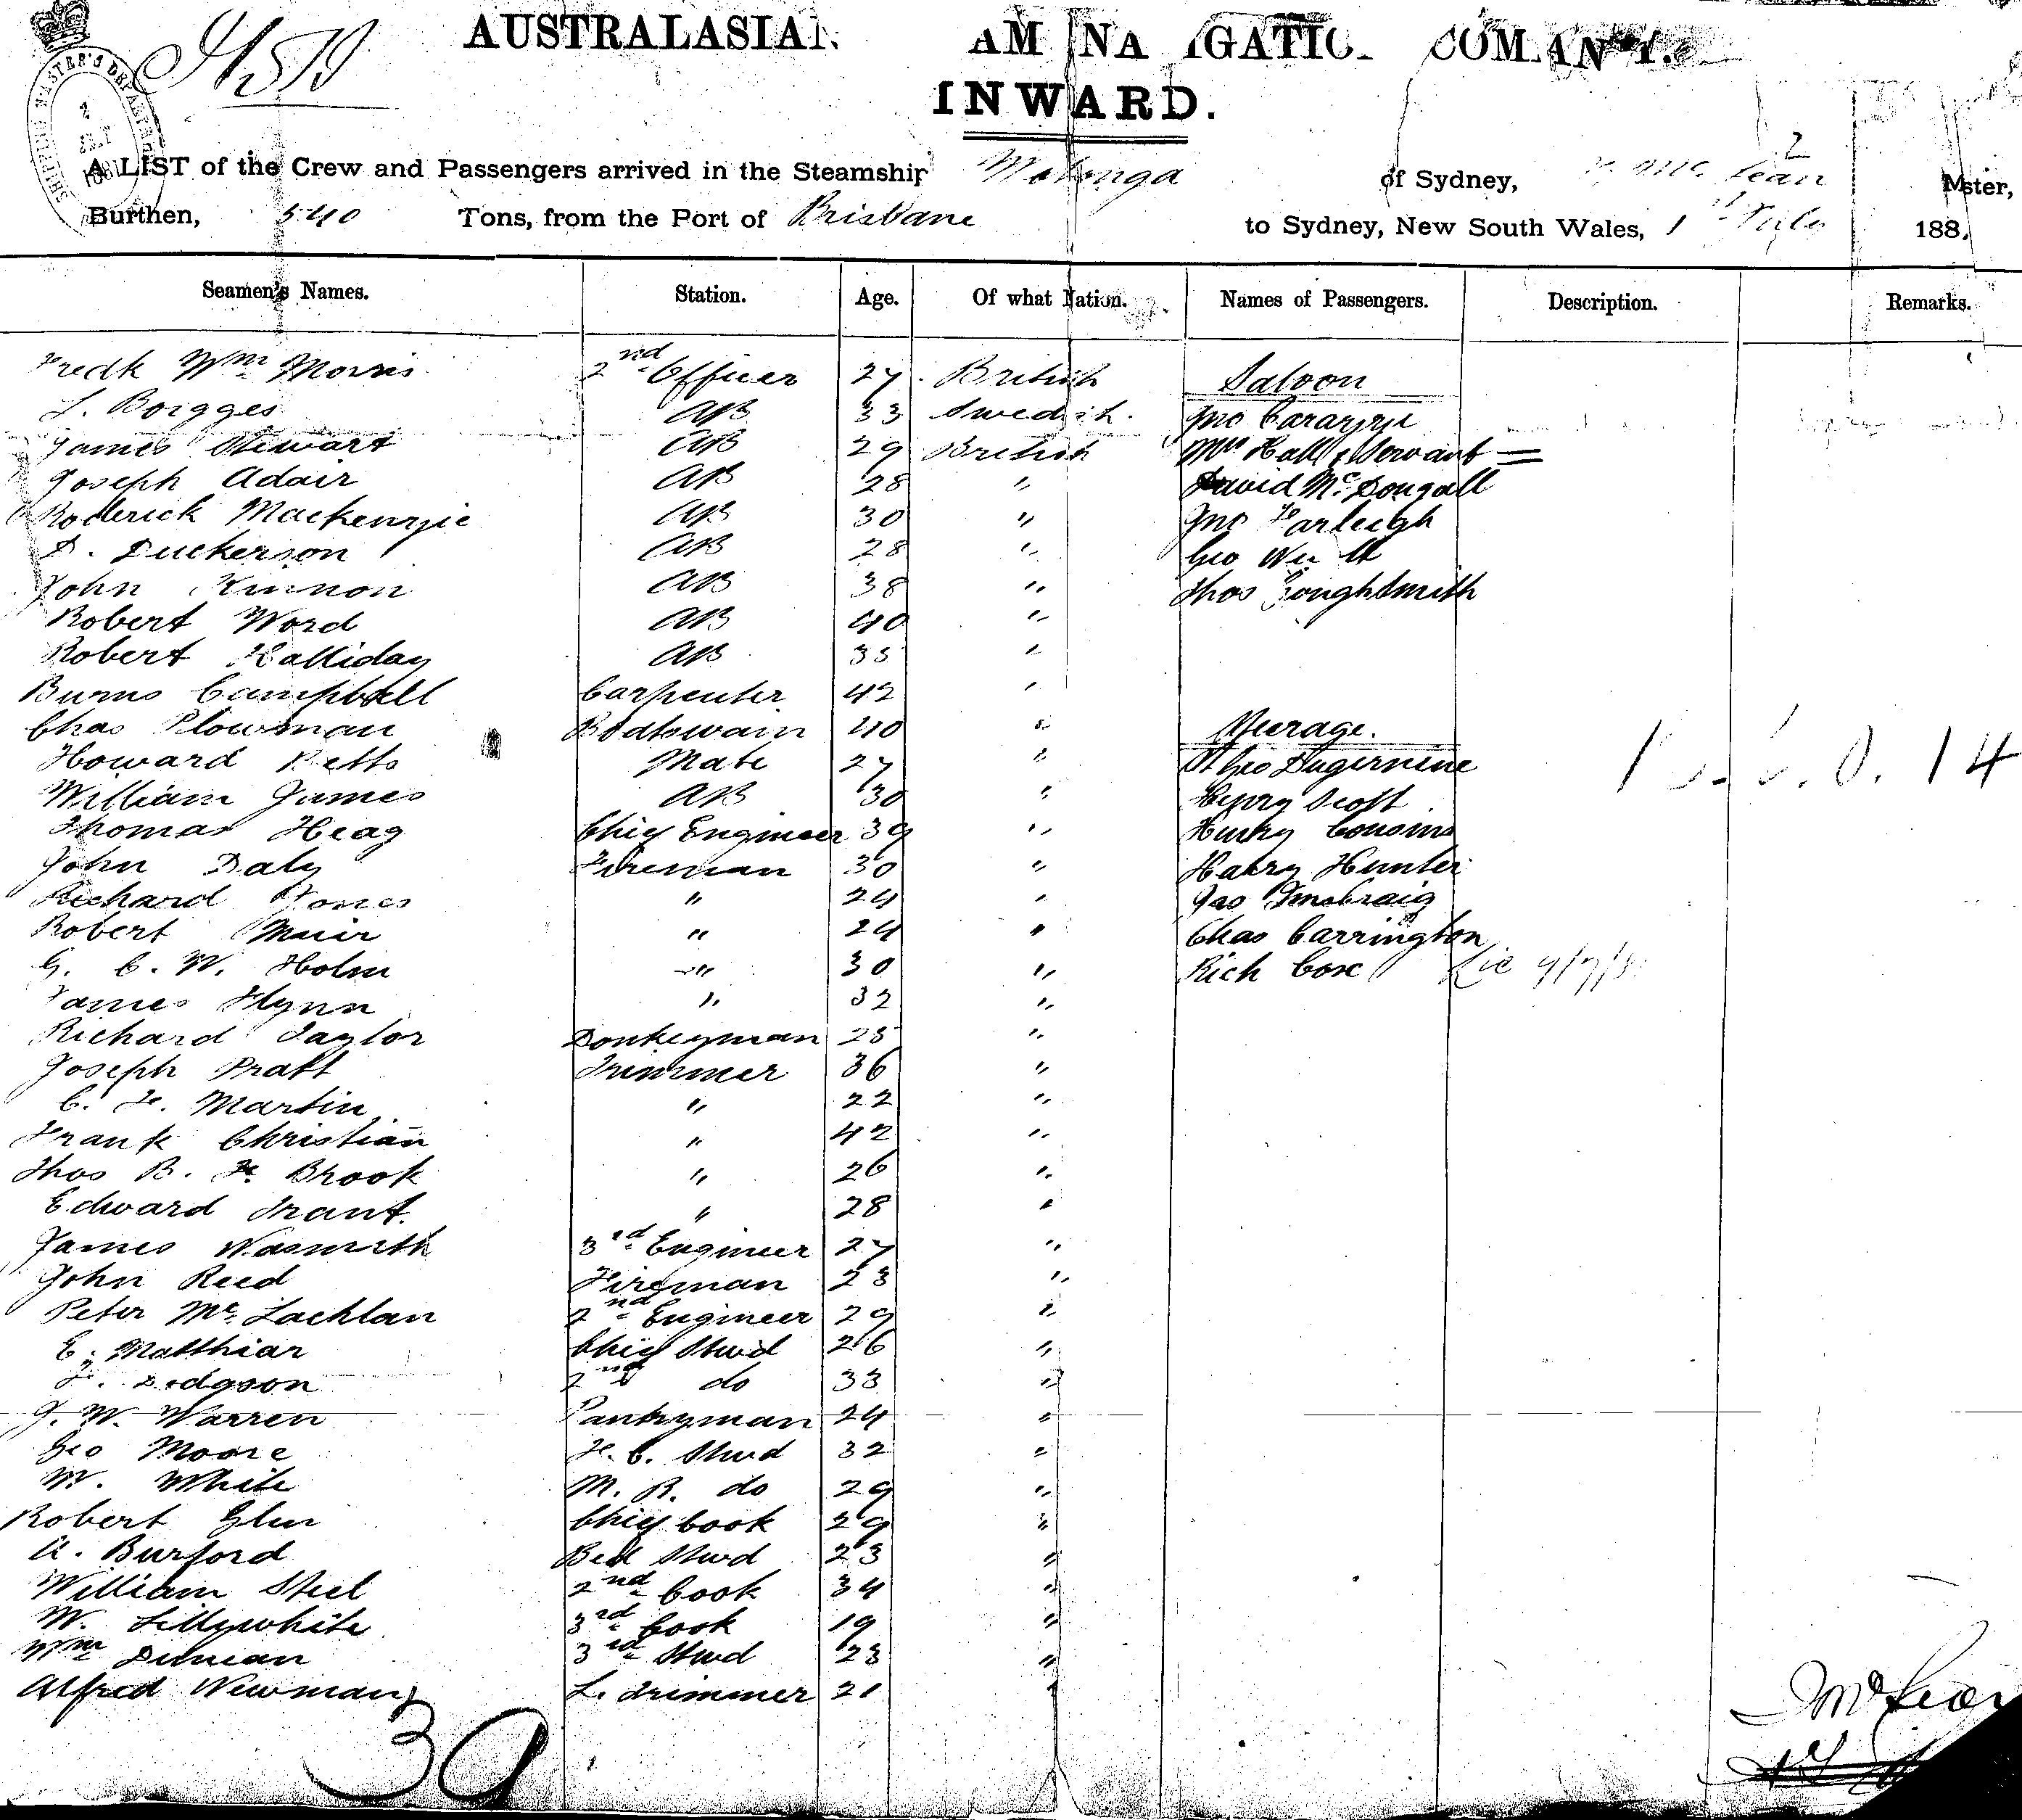 AUSTRALASIAN
INWARD.
A LIST of the Crew and Passengers arrived in the Steamship of Sydney, Mc Lean Mster,
Burthen, 540 Tons, from the Port of Brisbane to Sydney, New South Wales, 1st July 188
Seamen's Names. Station. Age. Of what Nation. Names of Passengers. Description. Remarks.
Fredk Wm Morris 2nd Officer 27 British Saloon
L. Borgges AB 33 Swedish. Jno
James Stewart AB 29 British Mrs Hall & Servant =
Joseph Adair AB 28 " David McDougall
Roderick Mackenzie AB 30 " Jno Farleigh
D. Duckerson AB 28 " Geo
John Kinnon AB 38 " Thos
Robert Word AB 40 "
Robert Halliday AB 35 "
Burns Campbell Carpenter 42 "
Chas Plowman Boatswain 40 " Steerage.
Howard Betts Mate 27 " Geo
William James AB 30 " Henry Scott
Thomas Heag Chief Engineer 39 " Henry Cousins
John Daly Fireman 30 " Harry Hunter
Richard Jones " 24 "
Robert Muir " 24 " Chas Carrington
G. C. W. Holm " 30 " Rich Cox
James Flynn " 32 "
Richard Taylor Donkeyman 25 "
Joseph Pratt Trimmer 36 "
C. F. Martin " 22 "
Frank Christian " 42 "
Thos B. F. Brook " 26 "
Edward Grant. " 28 "
James Nasmith 3rd Engineer 27 "
John Reed Fireman 23 "
Peter Mc Lachlan 2nd Engineer 29 "
E. Matthiar Chief Stwd 26 "
F. Dodgson 2nd do 33 "
J. W. Warren Pantryman 24 "
Geo Moore F. C. Stwd 32 "
W. White M. R. do 29 "
Robert Glen Chief Cook 29 "
A. Burford Bed Stwd 23 "
William Steel 2nd Cook 34 "
W. Lillywhite 3rd Cook 19 "
Wm Duncan 3rd Stwd 23 "
Alfred Newman L. Trimmer 21 "
39